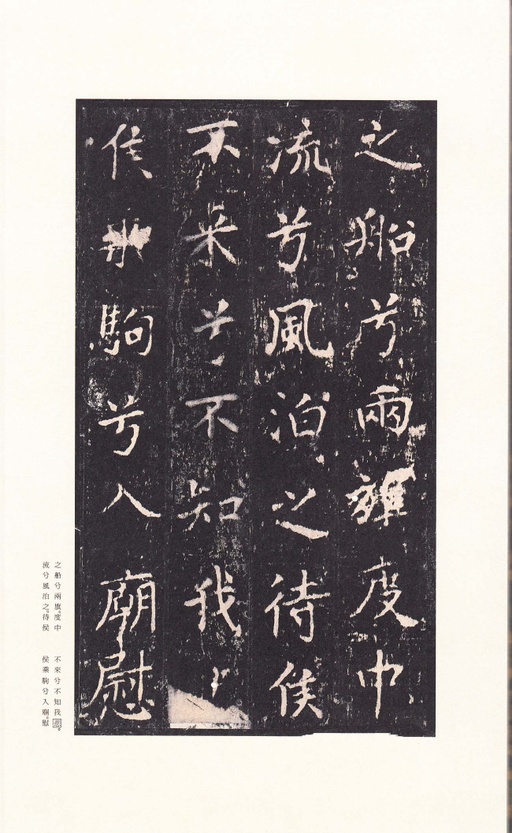 之船兮兩旗度中
流兮風泊之待侯
不來兮不知我
侯乘駒兮入廟慰
之船兮兩旗度中
流兮風泊之待侯
不來兮不知我悲
侯乘駒兮入廟慰